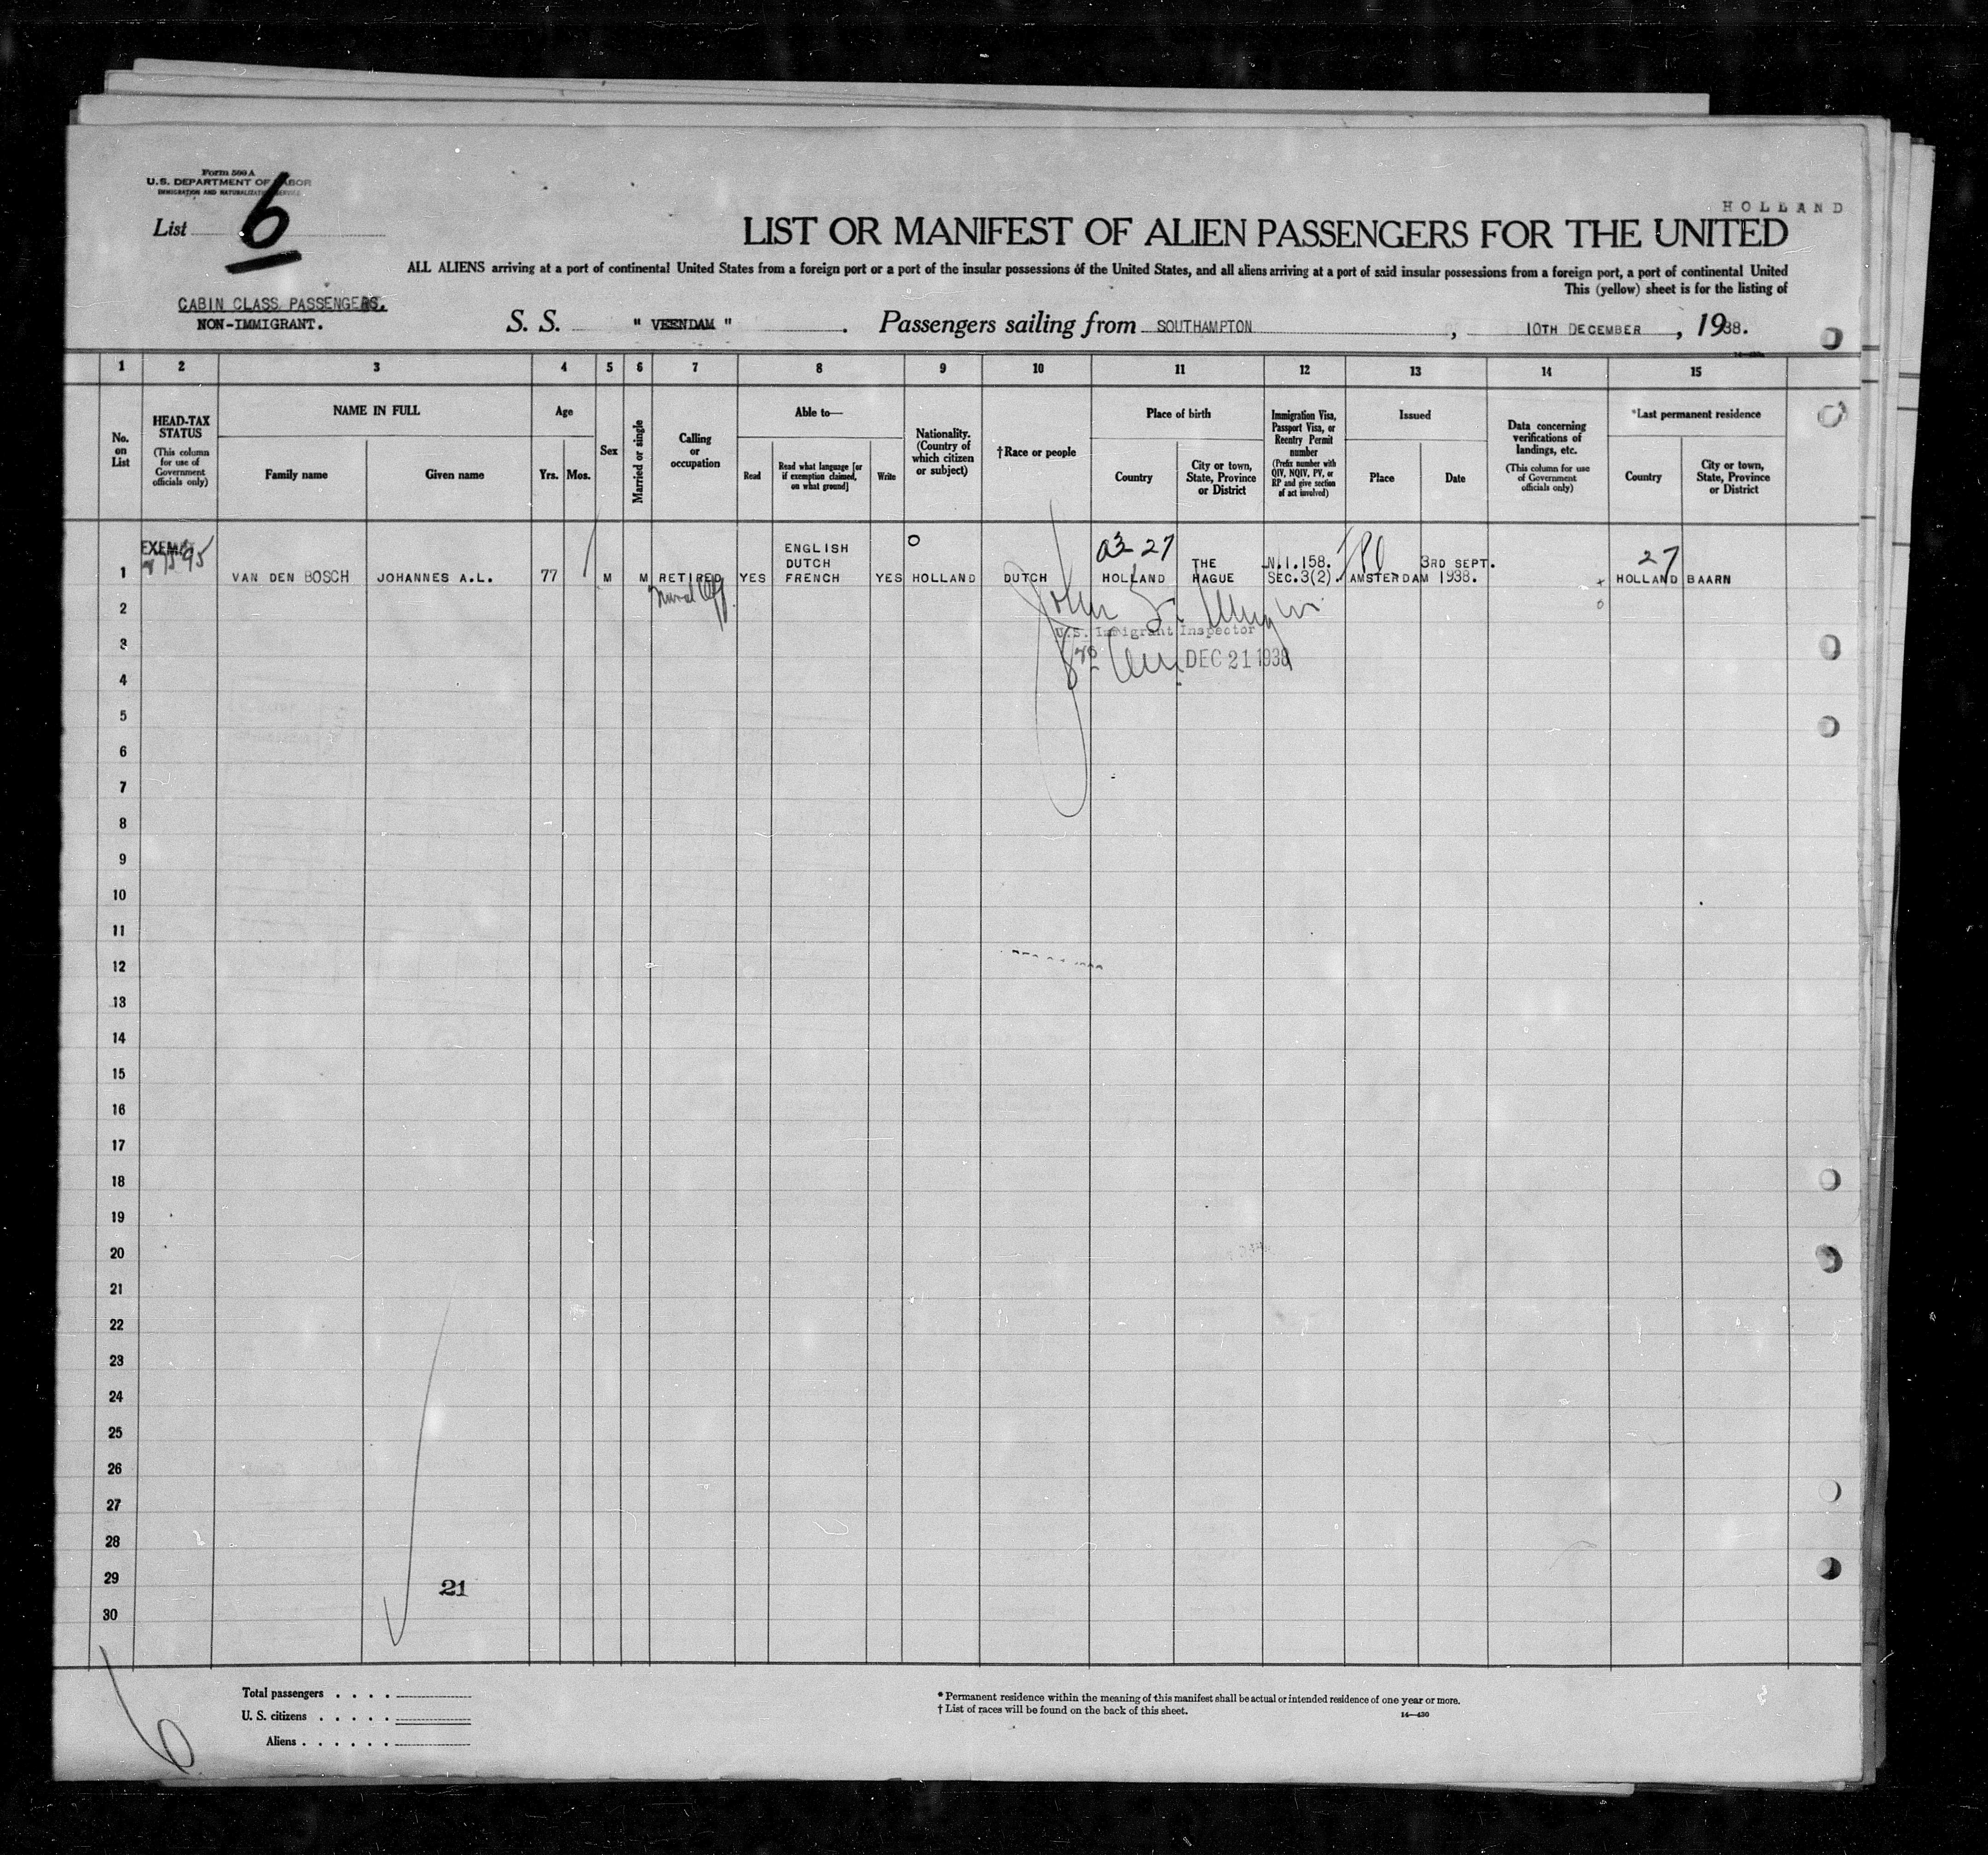 Form 500 A
U.S. DEPARTMENT OF LABOR
IMMIGRATION AND NATURALIZATION SERVICE
List 6
HOLLAND
LIST OR MANIFEST OF ALIEN PASSENGERS FOR THE UNITED
ALL ALIENS arriving at a port of continental United States from a foreign port or a port of the insular possessions of the United States, and all aliens arriving at a port of said insular possessions from a foreign port, a port of continental United
This (yellow) sheet is for the listing of
CABIN CLASS PASSENGERS.
NON-IMMIGRANT.
S. S. " VEENDAM " . Passengers sailing from SOUTHAMPTON , 10TH DECEMBER , 1938.
1 2 3 4 5 6 7 8 9 10 11 12 13 14 15
No. on List
HEAD-TAX STATUS
(This column for use of Government officials only)
NAME IN FULL
Family name
Given name
Age
Yrs.
Mos.
Sex
Married or single
Calling or occupation
Able to—
Read
Read what language [or if exemption claimed, on what ground]
Write
Nationality. (Country of which citizen or subject)
†Race or people
Place of birth
Country
City or town, State, Province or District
Immigration Visa, Passport Visa, or Reentry Permit number
(Prefix number with QIV, NQIV, PV, or RP and give section of act involved)
Issued
Place
Date
Data concerning verifications of landings, etc.
(This column for use of Government officials only)
*Last permanent residence
Country
City or town, State, Province or District
1
VAN DEN BOSCH
JOHANNES A.L.
77
M
M
RETIRED
YES
ENGLISH
DUTCH
FRENCH
YES
O
HOLLAND
DUTCH
27
HOLLAND
THE
HAGUE
N.I.158.
SEC.3(2).
AMSTERDAM
3RD SEPT.
1938.
27
HOLLAND
BAARN
John
U.S. Immigrant Inspector
DEC 21 1938
2
3
4
5
6
7
8
9
10
11
12
13
14
15
16
17
18
19
20
21
22
23
24
25
26
27
28
29
30
21
6
Total passengers . . . .
U. S. citizens . . . . .
Aliens . . . . . .
* Permanent residence within the meaning of this manifest shall be actual or intended residence of one year or more.
† List of races will be found on the back of this sheet.
14—430